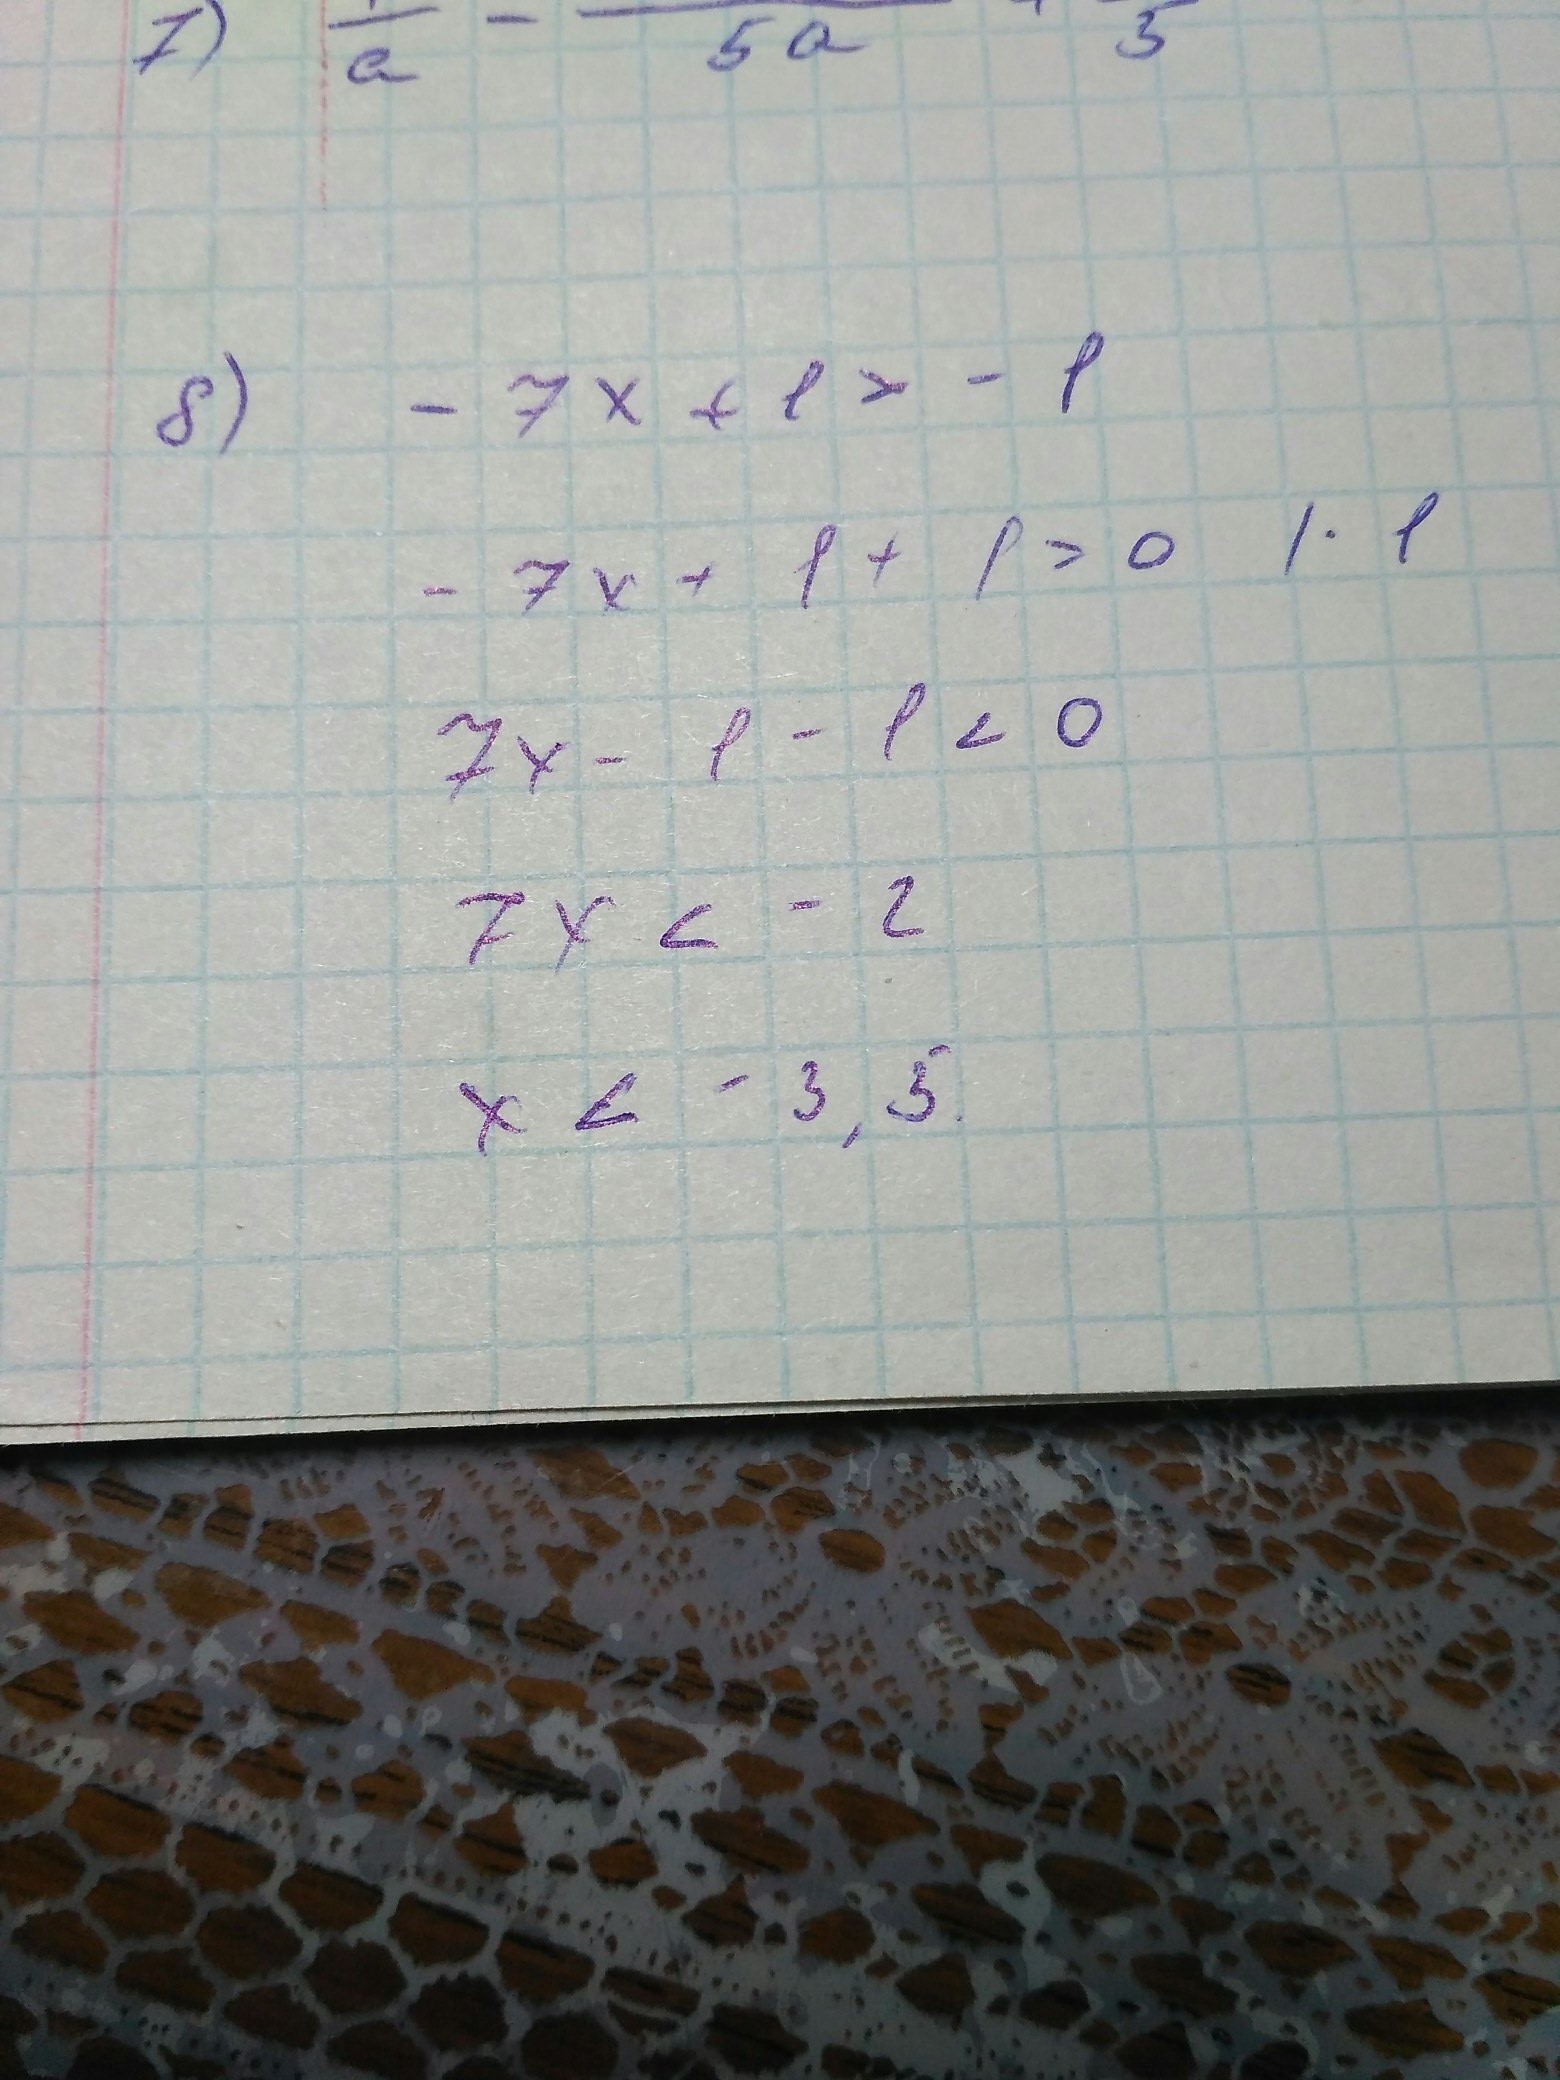 7) /a - /5a /5
8) - 7x + 1 > - 1
- 7x + 1 + 1 > 0 |· 1
7x - 1 - 1 < 0
7x < - 2
x < - 3,5.